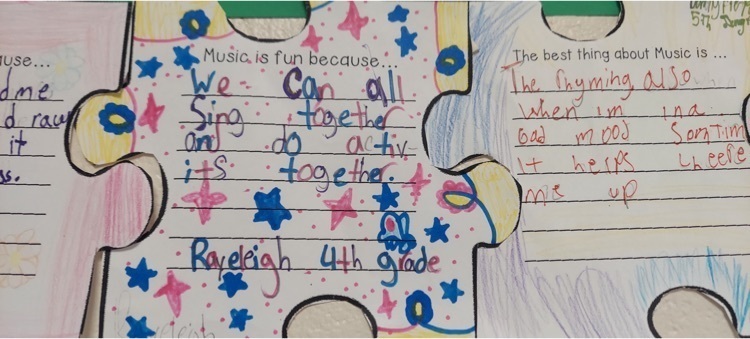 use...
d me
d raw
it
ss.
Music is fun because...
We Can all
Sing together
and do activ-
its together.
Rayeleigh 4th grade
5th
The best thing about Music is ...
The rhyming also
when im in a
bad mood Somtim
it helps cheere
me up